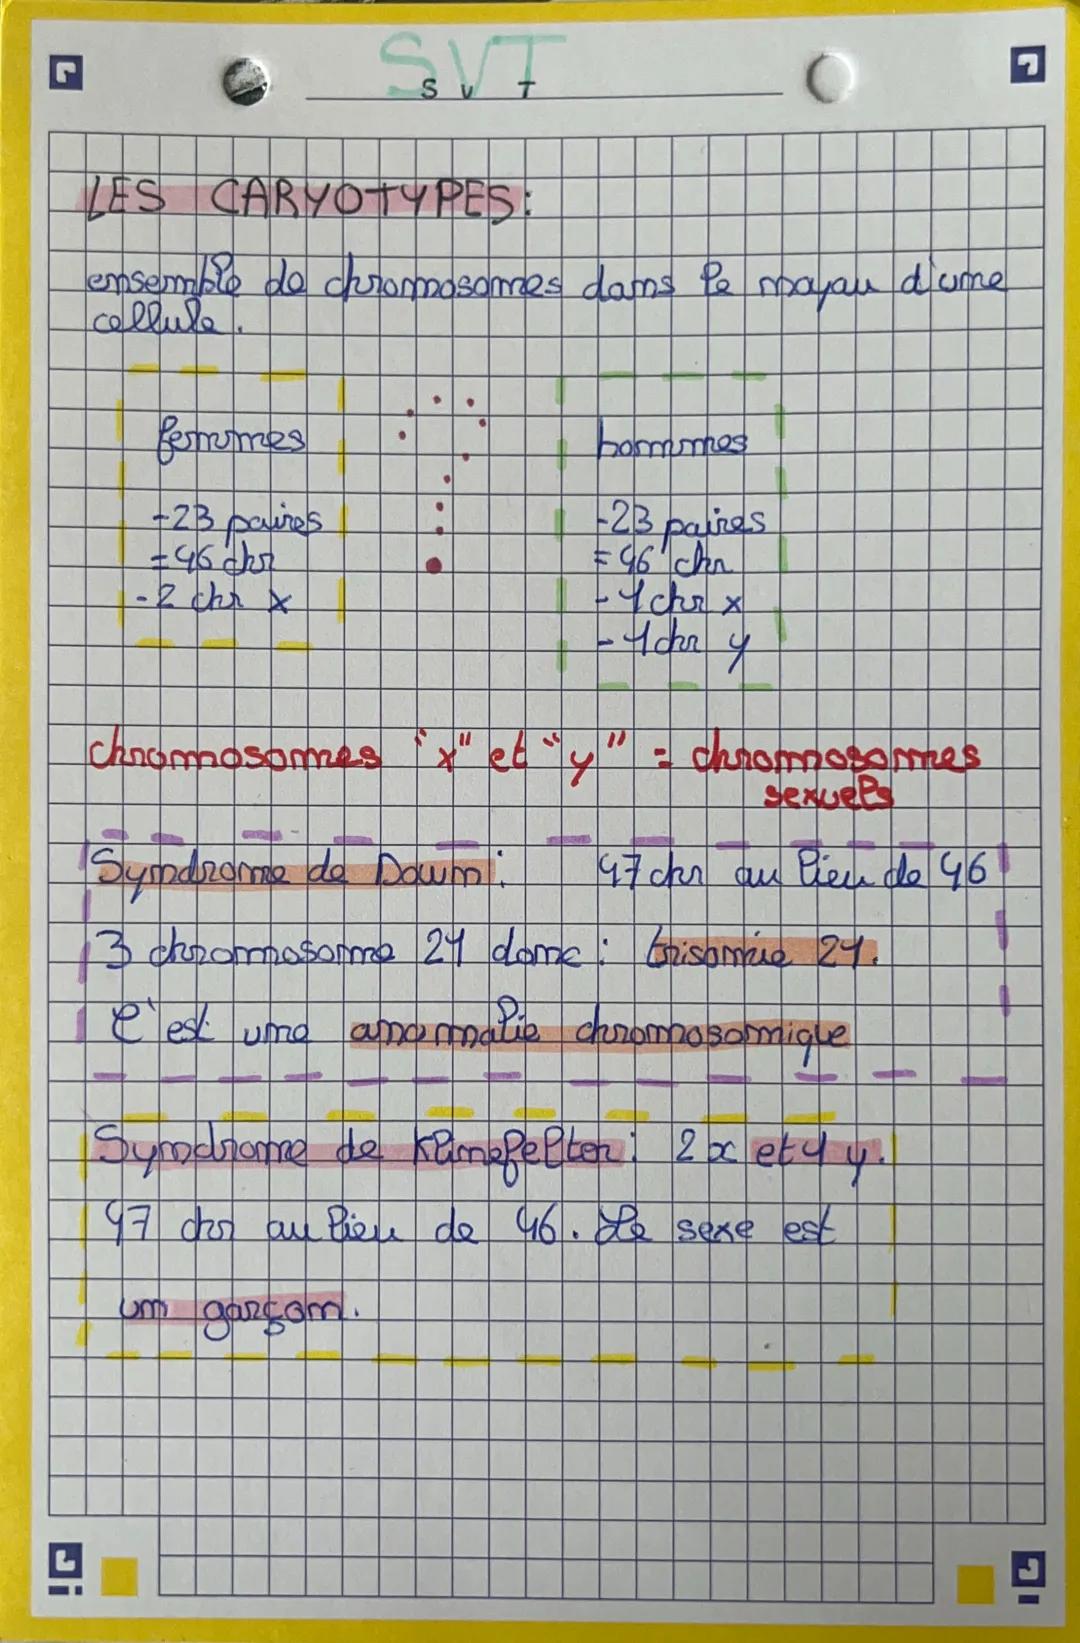 SVT
S V T
LES CARYOTYPES:
ensemble de chromosomes dans le noyau d'une
cellule.
femmes
-23 paires
=46 chr
-2 chr x
hommes
-23 paires
=46 chr
-1 chr x
-1 chr y
chromosomes "x" et "y" = chromosomes
sexuels
Syndrome de Down: 47 chr au lieu de 46
3 chromosome 21 donc: trisomie 21.
C'est une anomalie chromosomique
Syndrome de Klinefelter: 2 x et 1 y.
47 chr au lieu de 46. Le sexe est
un garçon.